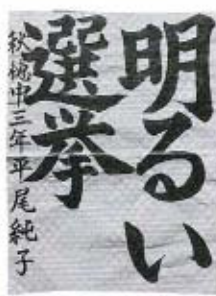 明るい
選挙
秋穂中三年平尾純子